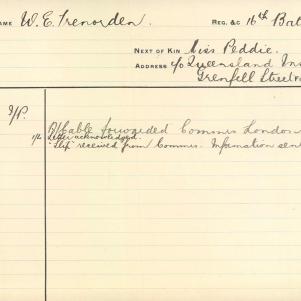 NAME W. E. Trenorden. REG. &C 16th Bat
NEXT OF KIN Miss Peddie.
ADDRESS c/o Queensland Ins
Grenfell Street
R/Cable forwarded Commrs London
Letter acknowledged.
"Slip" received from Commrs. Information sen